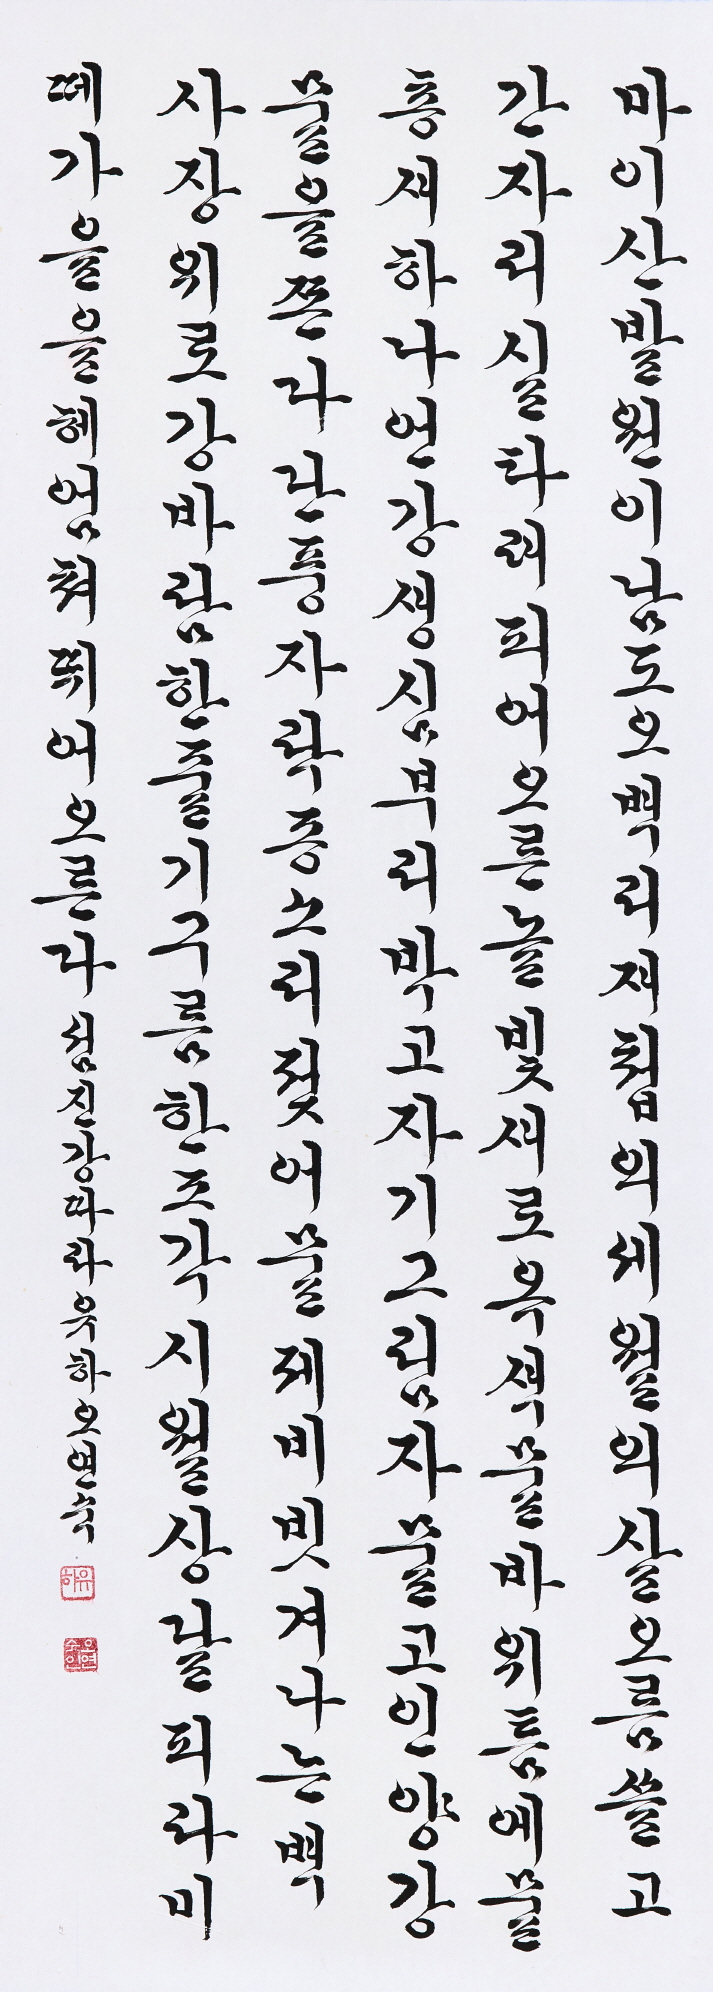 마이산발원이남도오백리재첩의세월의살오름쓸고
간자리실타래피어오른놀빛새로옥색물바위틈에물
총새하나연강생심부리박고자기그림자물고인양강
물을쫀다단풍자락종소리젖어물제비빗겨나는백
사장위로강바람한줄기구름한조각시월상달피라미
떼가을을헤엄쳐뛰어오른다 섬진강따라 유하 오연숙
유하
오연숙인